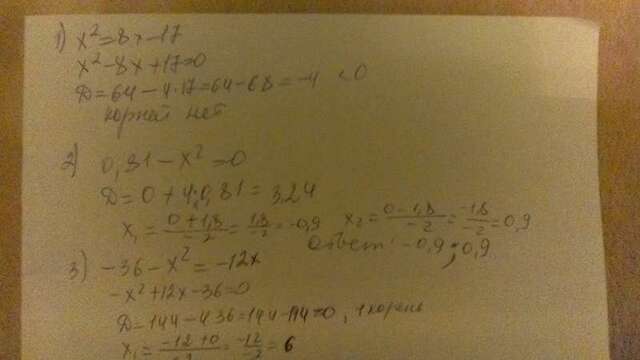 1) x²=8x-17
x²-8x+17=0
D=64-4·17=64-68=-4 <0
корней нет
2) 0,81-x²=0
D=0+4·0,81=3,24
x₁=(0+1,8)/-2=1,8/-2=-0,9 x₂=(0-1,8)/-2=-1,8/-2=0,9
Ответ: -0,9; 0,9
3) -36-x²=-12x
-x²+12x-36=0
D=144-4·36=144-144=0, 1 корень
x₁=(-12+0)/-2=-12/-2=6